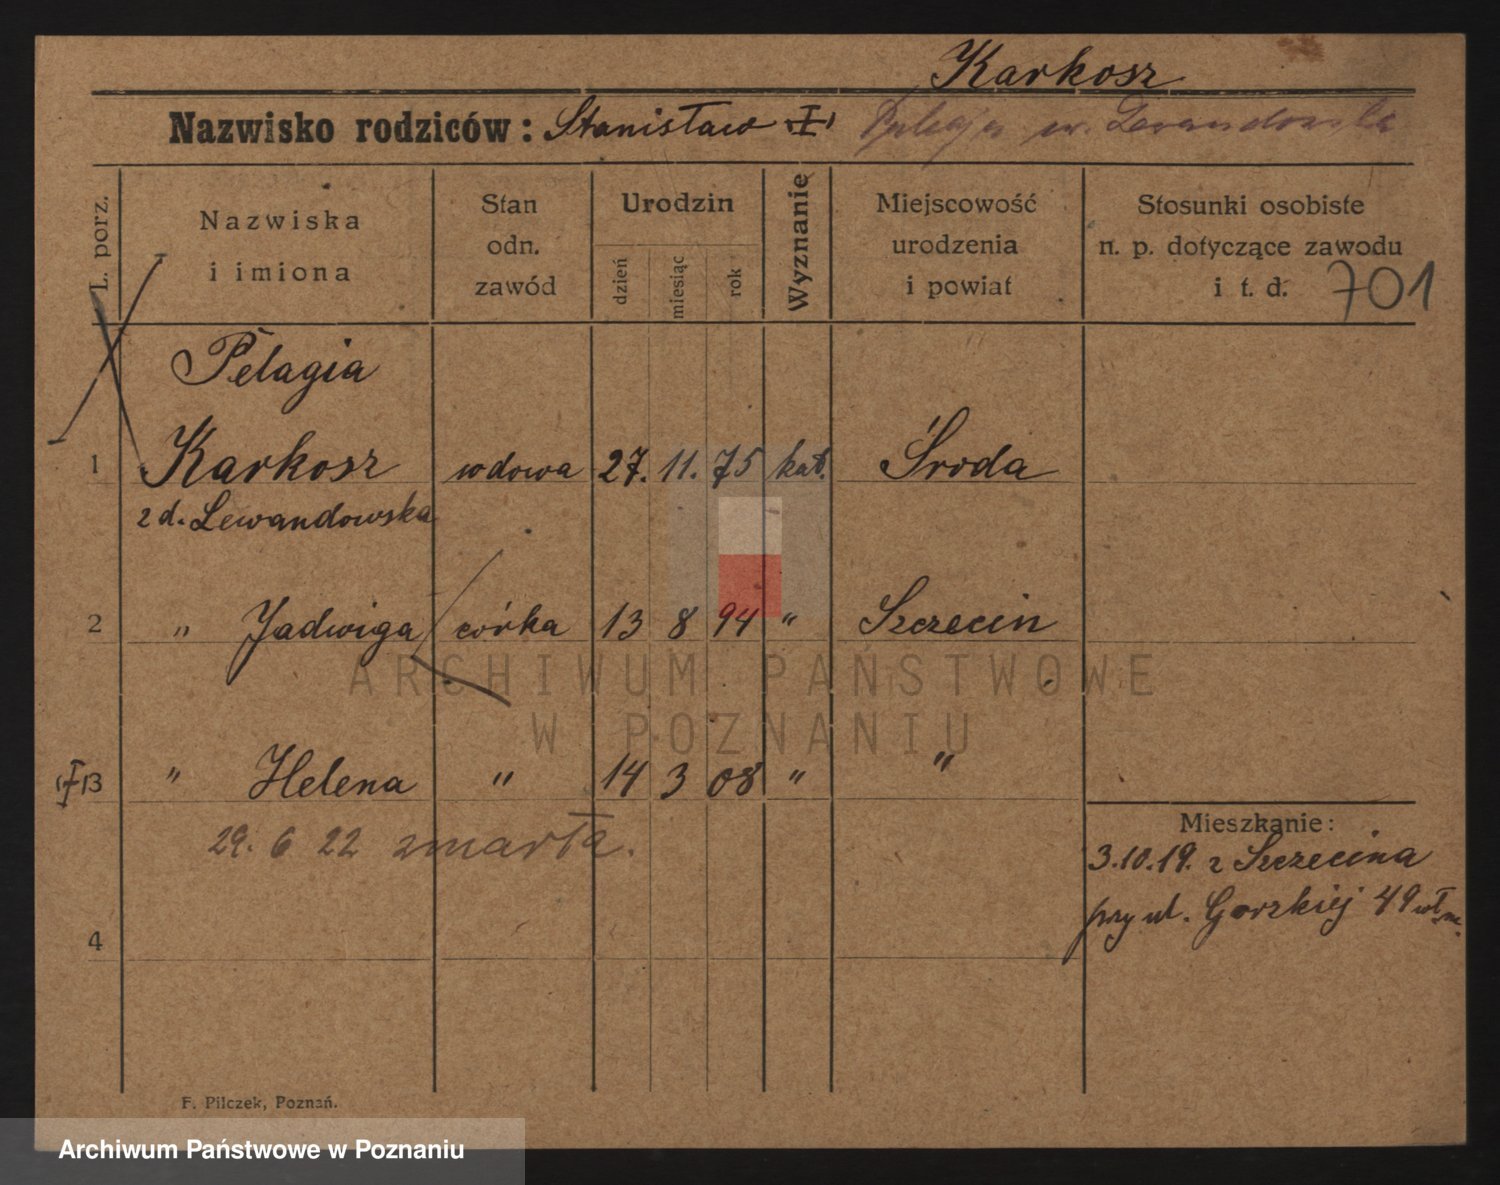 Karkosz
Nazwisko rodziców: Stanisław Pelagja Lewandowska
L. porz.
Nazwiska
i imiona
Stan
odn.
zawód
Urodzin
dzień
miesiąc
rok
Wyznanie
Miejscowość
urodzenia
i powiat
Stosunki osobiste
n. p. dotyczące zawodu
i t. d. 701
Pelagia
1 Karkosz wdowa 27. 11. 75 kat. Środa
z d. Lewandowska
2 " Jadwiga córka 13 8 94 " Szczecin
3 " Helena " 14 3 08 " "
29. 6 22 zmarła.
Mieszkanie:
3.10.19. z Szczecina
przy ul. Gorzkiej 49
4
F. Pilczek, Poznań.
ARCHIWUM PAŃSTWOWE
W POZNANIU
Archiwum Państwowe w Poznaniu